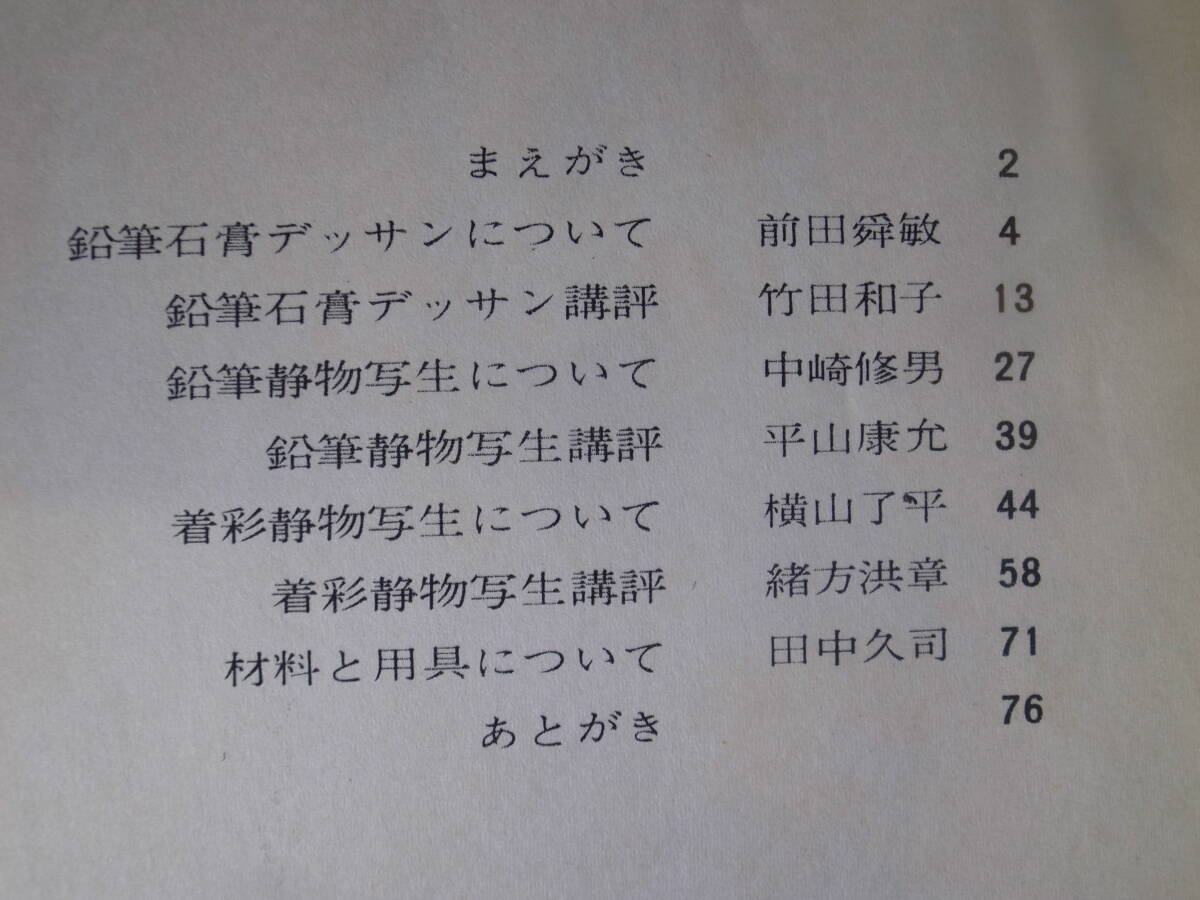 まえがき 2
鉛筆石膏デッサンについて 前田舜敏 4
鉛筆石膏デッサン講評 竹田和子 13
鉛筆静物写生について 中崎修男 27
鉛筆静物写生講評 平山康允 39
着彩静物写生について 横山了平 44
着彩静物写生講評 緒方洪章 58
材料と用具について 田中久司 71
あとがき 76